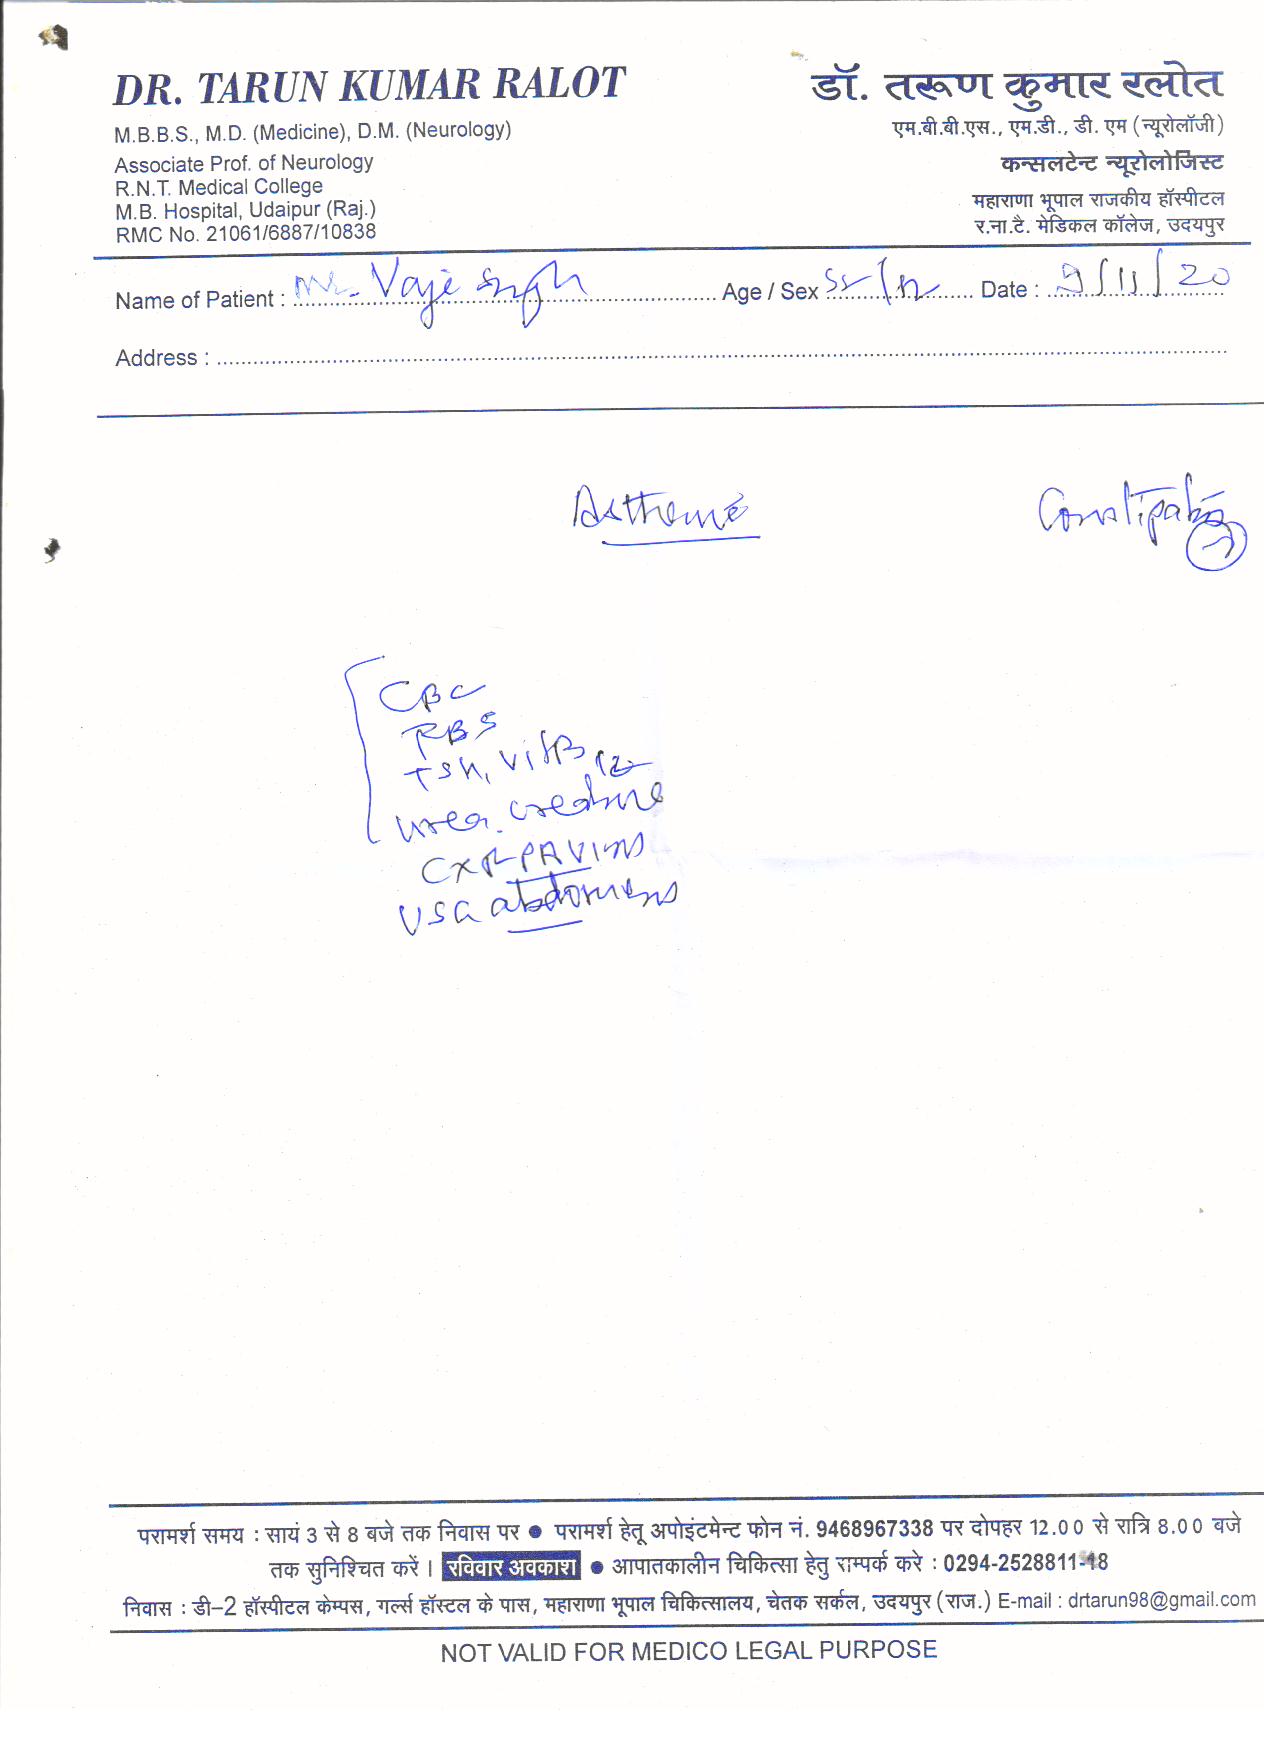 DR. TARUN KUMAR RALOT
M.B.B.S., M.D. (Medicine), D.M. (Neurology)
Associate Prof. of Neurology
R.N.T. Medical College
M.B. Hospital, Udaipur (Raj.)
RMC No. 21061/6887/10838
डॉ. तरूण कुमार रलोत
एम.बी.बी.एस., एम.डी., डी. एम (न्यूरोलॉजी)
कन्सलटेन्ट न्यूरोलोजिस्ट
महाराणा भूपाल राजकीय हॉस्पीटल
र.ना.टै. मेडिकल कॉलेज, उदयपुर
Name of Patient : Mr. Vaje Singh Age / Sex Date : 9/11/20
Address :
Constipation
CBC
RBS
TSH, Vit B12
urea, creatinine
CXR-PA View
USG abdomen
परामर्श समय : सायं 3 से 8 बजे तक निवास पर ● परामर्श हेतू अपोइंटमेन्ट फोन नं. 9468967338 पर दोपहर 12.00 से रात्रि 8.00 बजे
तक सुनिश्चित करें । रविवार अवकाश ● आपातकालीन चिकित्सा हेतु सम्पर्क करे : 0294-2528811-18
निवास : डी–2 हॉस्पीटल केम्पस, गर्ल्स हॉस्टल के पास, महाराणा भूपाल चिकित्सालय, चेतक सर्कल, उदयपुर (राज.) E-mail : drtarun98@gmail.com
NOT VALID FOR MEDICO LEGAL PURPOSE